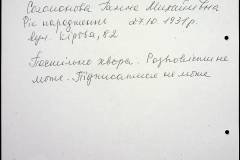 Соломонова Ганна Михайлівна
Рік народження 27.10.1931р.
вул. Кірова, 82
Постільно хвора. Розмовляти не
може. Підписатися не може